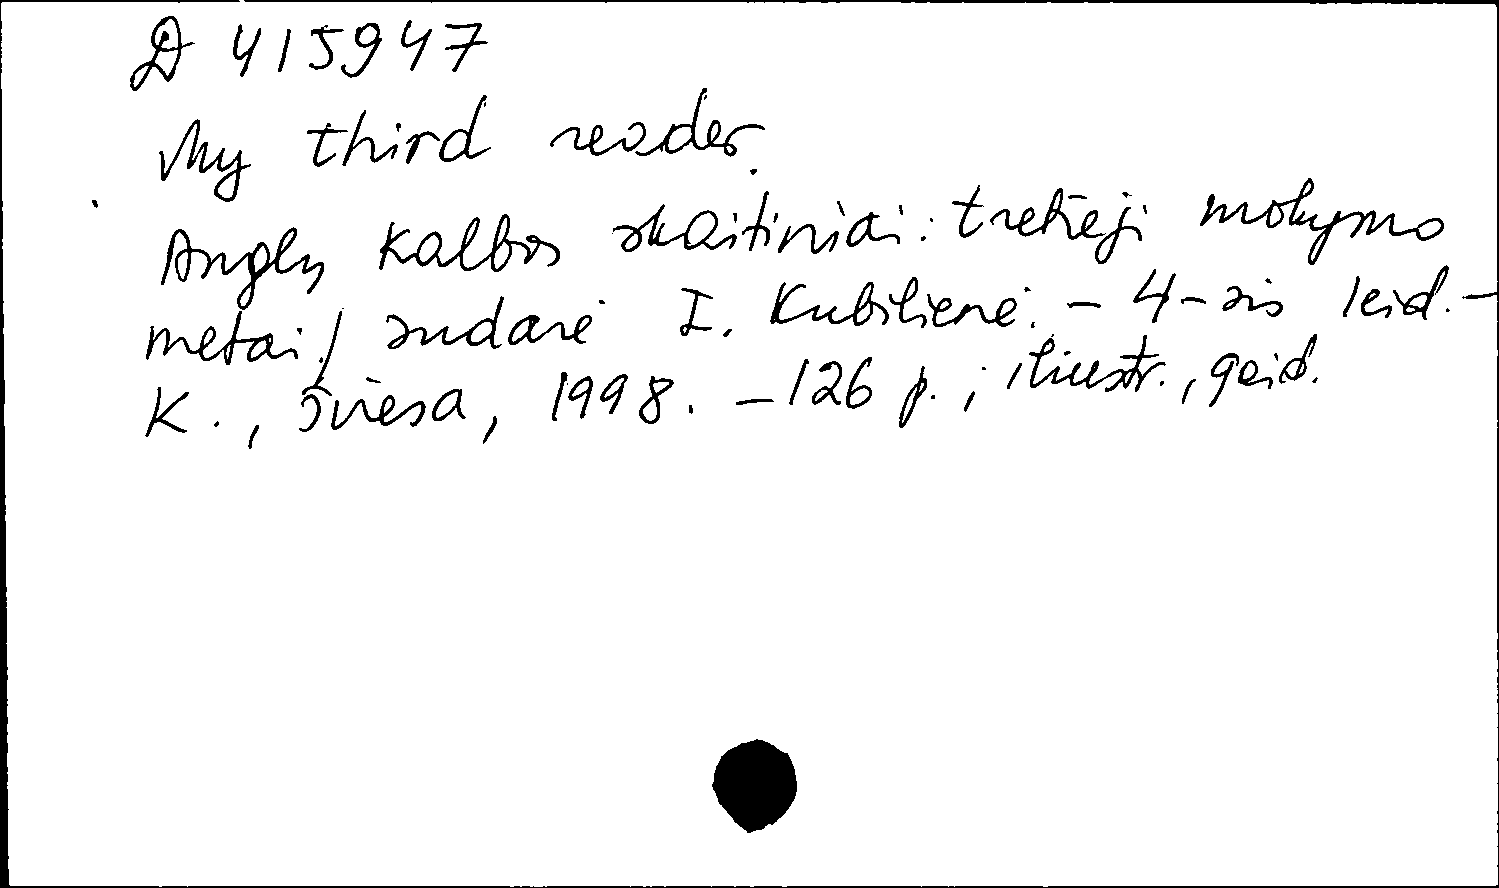 D 415947
My third reader.
Anglų kalbos skaitiniai: tretieji mokymo
metai / sudarė I. Kubilienė. - 4-sis leid. -
K., Šviesa, 1998. - 126 p.; iliustr., gaid.